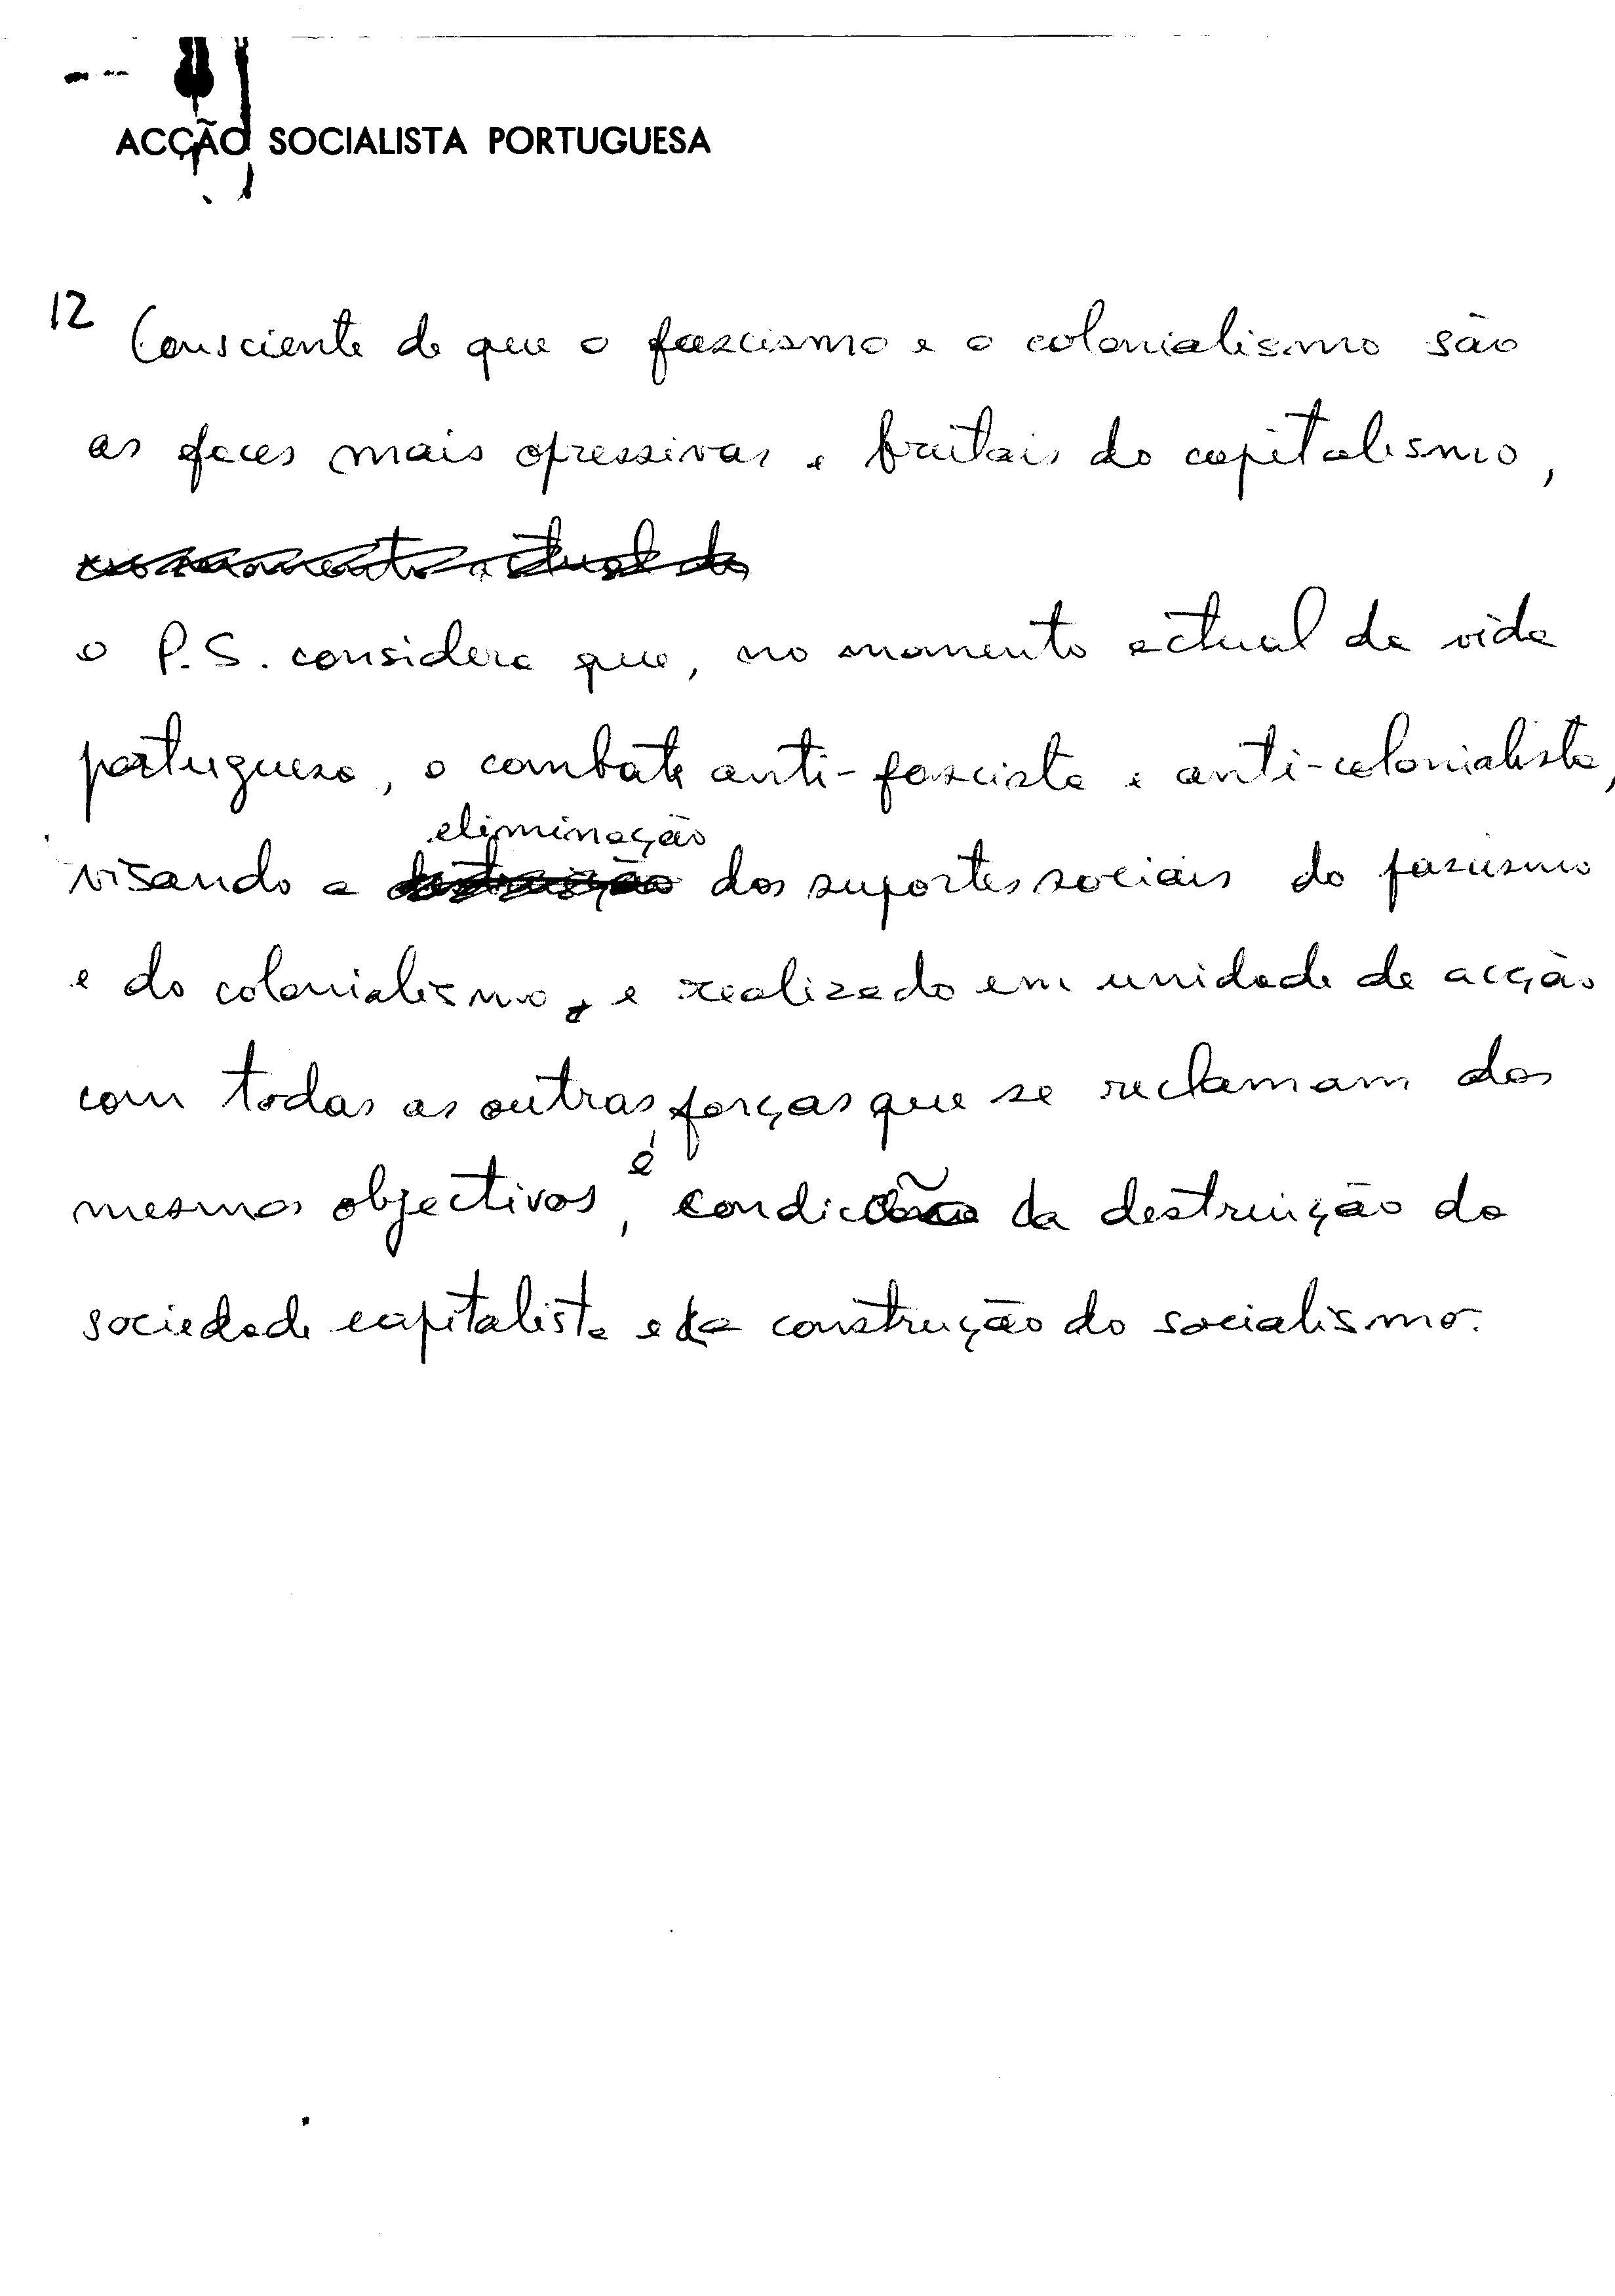 ACÇÃO SOCIALISTA PORTUGUESA
12
Consciente de que o fascismo e o colonialismo são
as faces mais opressivas e brutais do capitalismo,
no momento actual da
o P.S. considera que, no momento actual da vida
portuguesa, o combate anti-fascista e anti-colonialista,
eliminação
visando a destruição dos suportes sociais do fascismo
e do colonialismo, e realizado em unidade de acção
com todas as outras forças que se reclamam dos
mesmos objectivos, é condição da destruição da
sociedade capitalista e da construção do socialismo.